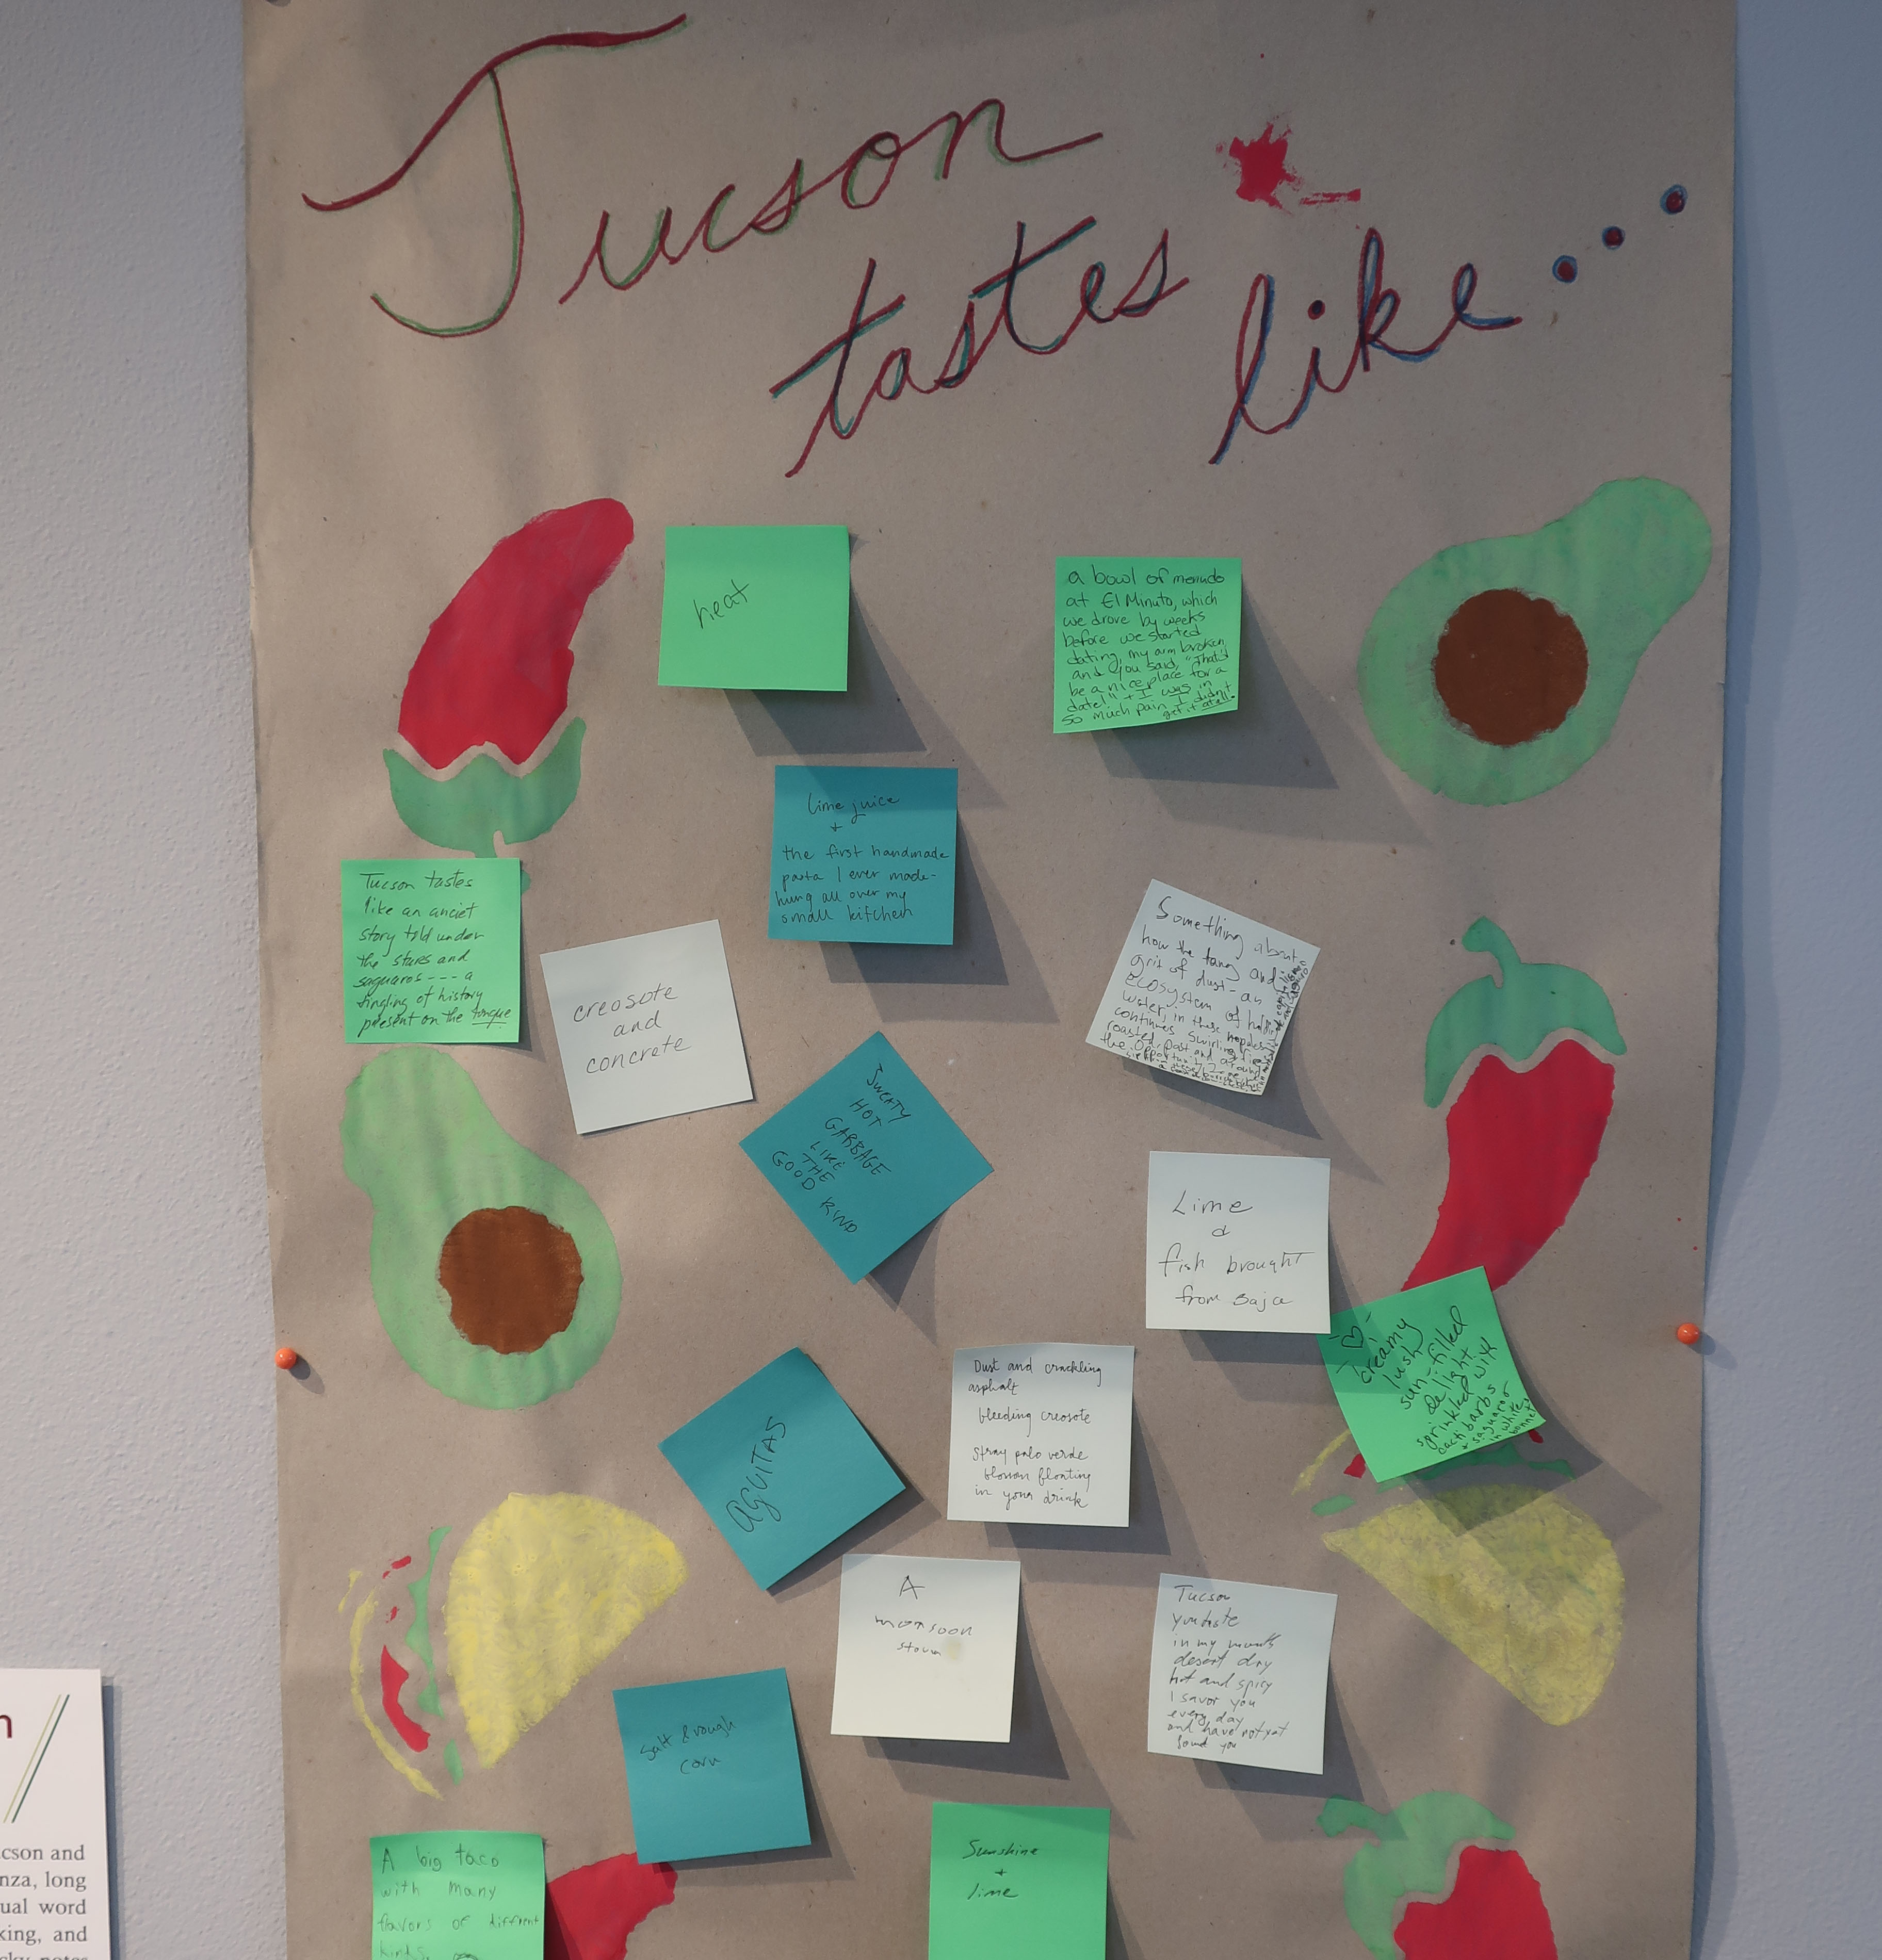 Tucson
tastes like...
heat
a bowl of menudo
at El Minuto, which
we drove by weeks
before we started
dating, my arm broken
and you said, "That'd
be a nice place for a
date!" + I was in
so much pain I didn't
get it at all.
lime juice
+
the first handmade
pasta I ever made-
hung all over my
small kitchen
Tucson tastes
like an anciet
story told under
the stars and
saguaros --- a
tingling of history
present on the tongue
creosote
and
concrete
Something about
how the tang and
grit of dust - an
ecosystem of
water, in these
continues swirling
roasted, past and around
the
SWEATY
HOT
GARBAGE
LIKE
THE
GOOD KIND
Lime
&
fish brought
from Baja
creamy
lush
sun-filled
delight
sprinkled with
cacti barbs
+ saguaro
in white
bonnet
Dust and crackling
asphalt
bleeding creosote
stray palo verde
blossom floating
in your drink
AGUITAS
A
monsoon
storm
Tucson
you taste
in my mouth
desert dry
hot and spicy
I savor you
every day
and have not yet
found you
Salt & rough
corn
A big taco
with many
flavors of diffrent
kinds.
Sunshine
+
lime
n
cson and
nza, long
ual word
king, and
cky notes